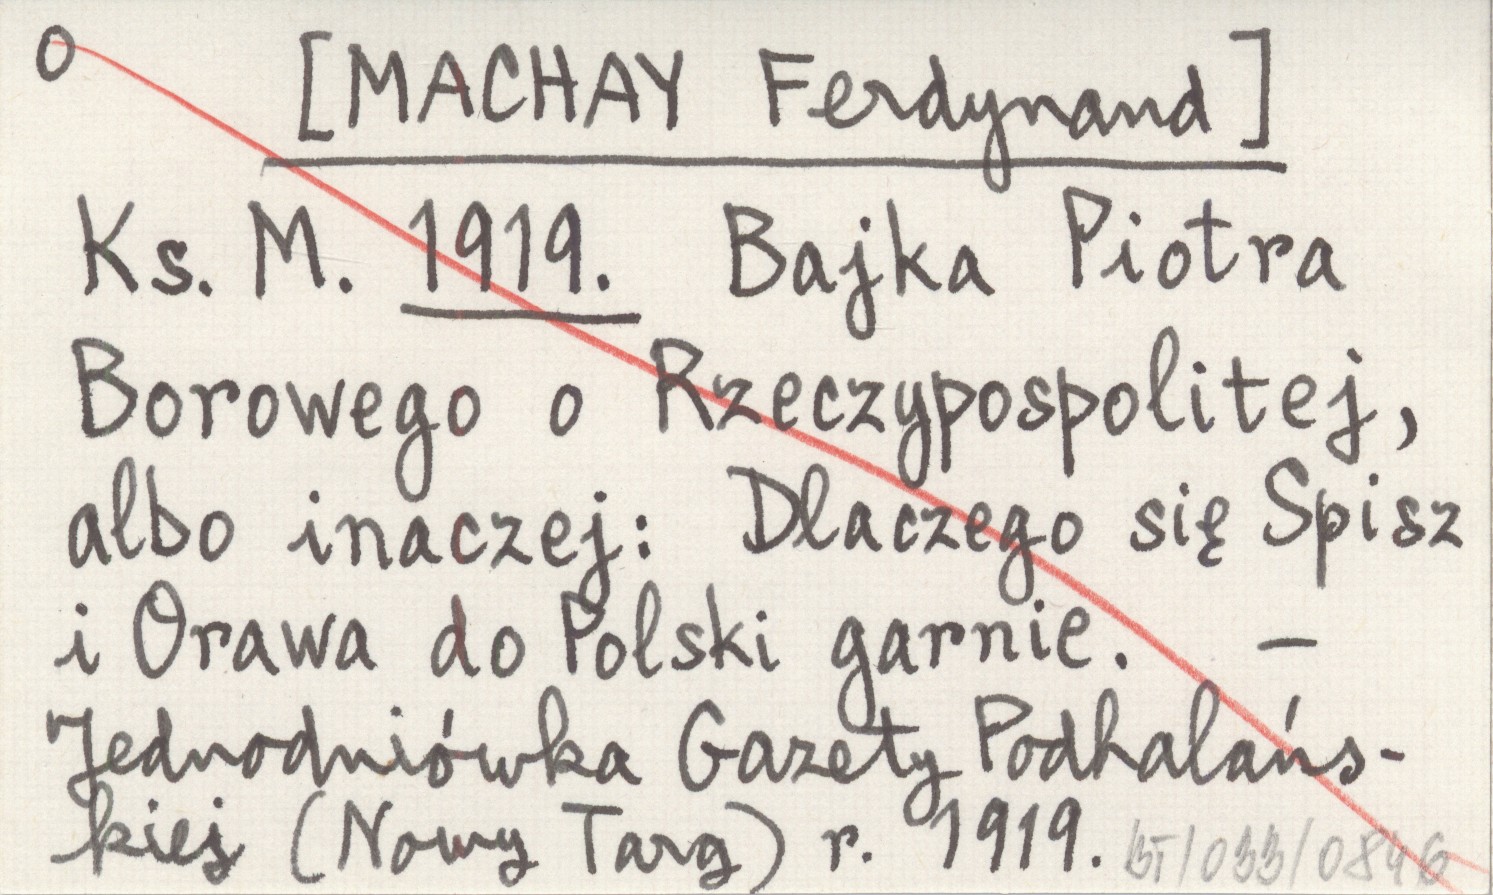 O [MACHAY Ferdynand]
Ks. M. 1919. Bajka Piotra
Borowego o Rzeczypospolitej,
albo inaczej: Dlaczego się Spisz
i Orawa do Polski garnie. —
Jednodniówka Gazety Podhalańs-
kiej (Nowy Targ) r. 1919. BT/033/0846